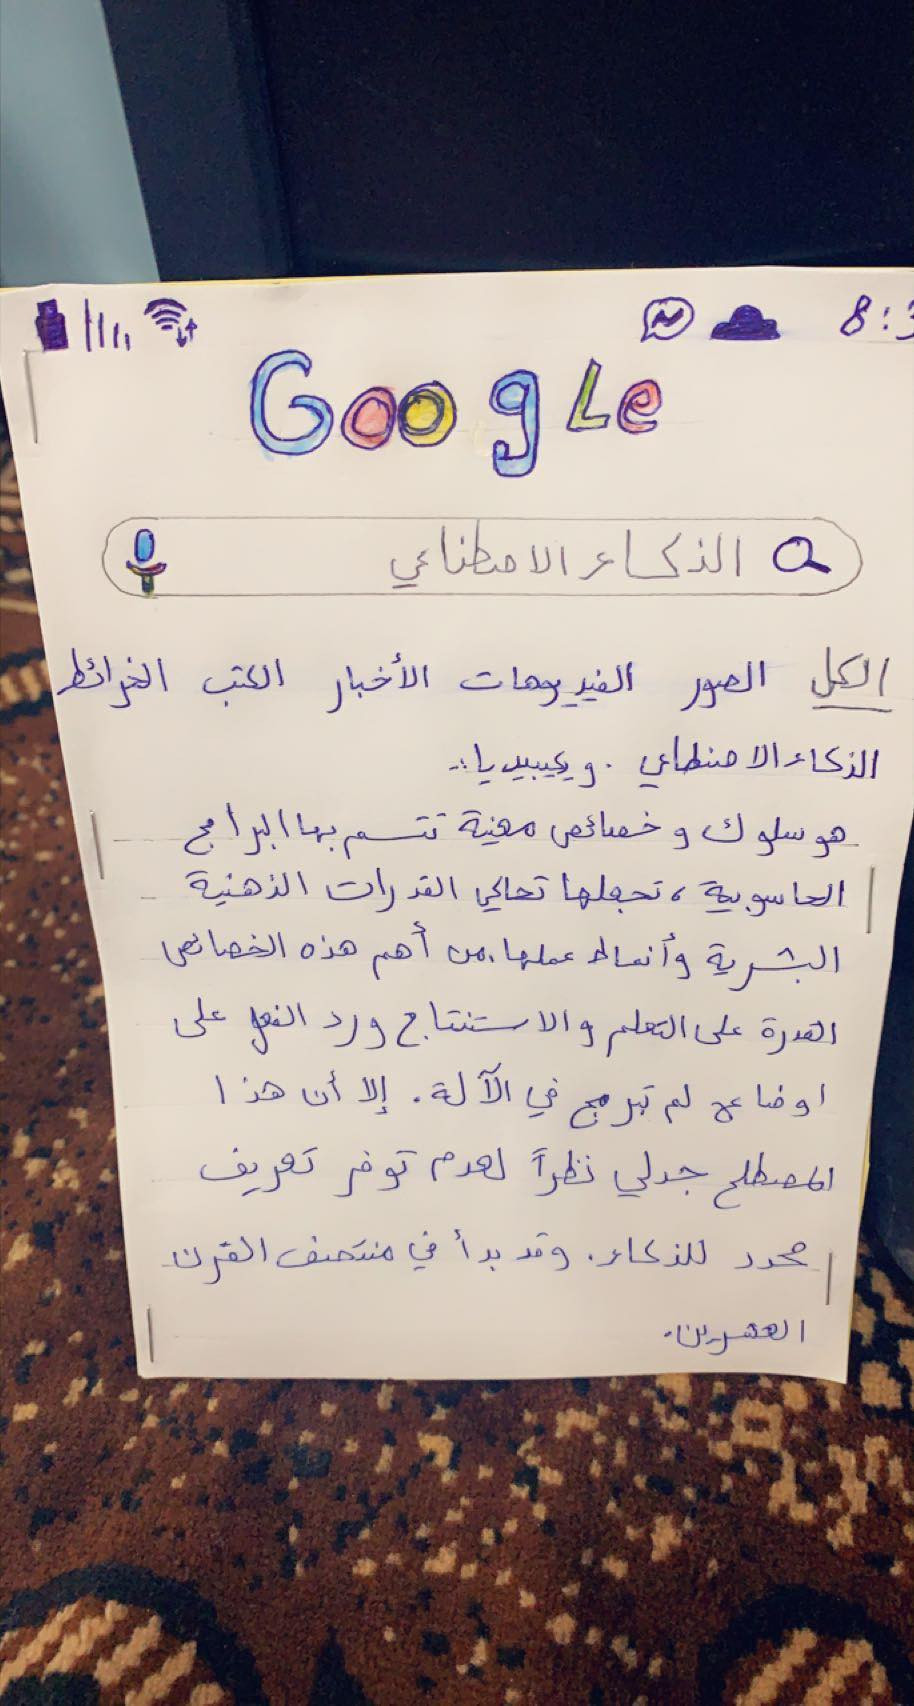 8:3
GoogLe
الذكاء الاصطناعي
الكل الصور الفيديوهات الأخبار الكتب الخرائط
الذكاء الاصنطاعي . ويكيبيديا:.
هو سلوك و خصائص معينة تتسم بها البرامج
الحاسوبية ، تجعلها تحاكي القدرات الذهنية
البشرية وأنماط عملها. من أهم هذه الخصائص
القدرة على التعلم و الاستنتاج ورد الفعل على
اوضاع لم تبرمج في الآلة. إلا أن هذا
المصطلح جدلي نظراً لعدم توفر تعريف
محدد للذكاء. وقد بدأ في منتصف القرن
العشرين.